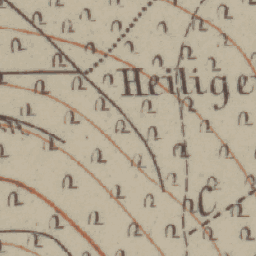 Heilige
C